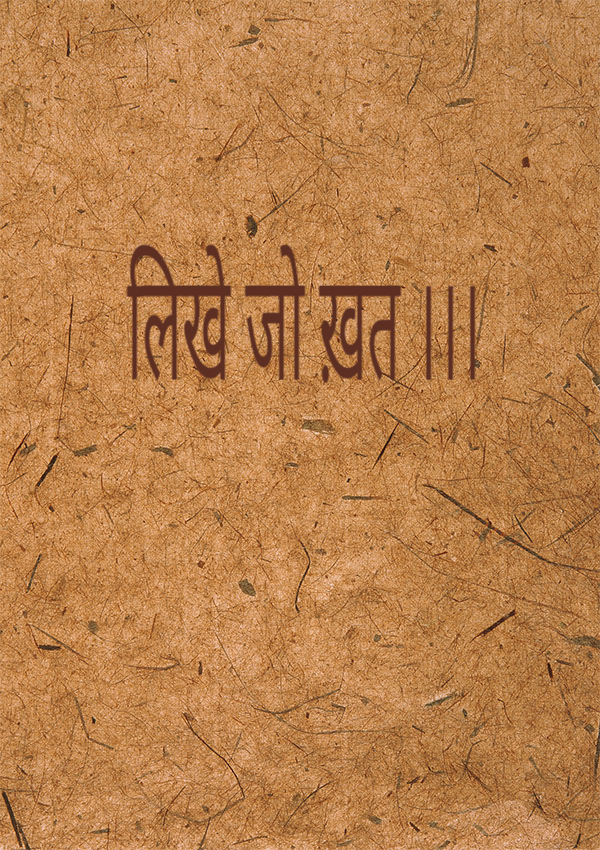 लिखे जो ख़त ।।।